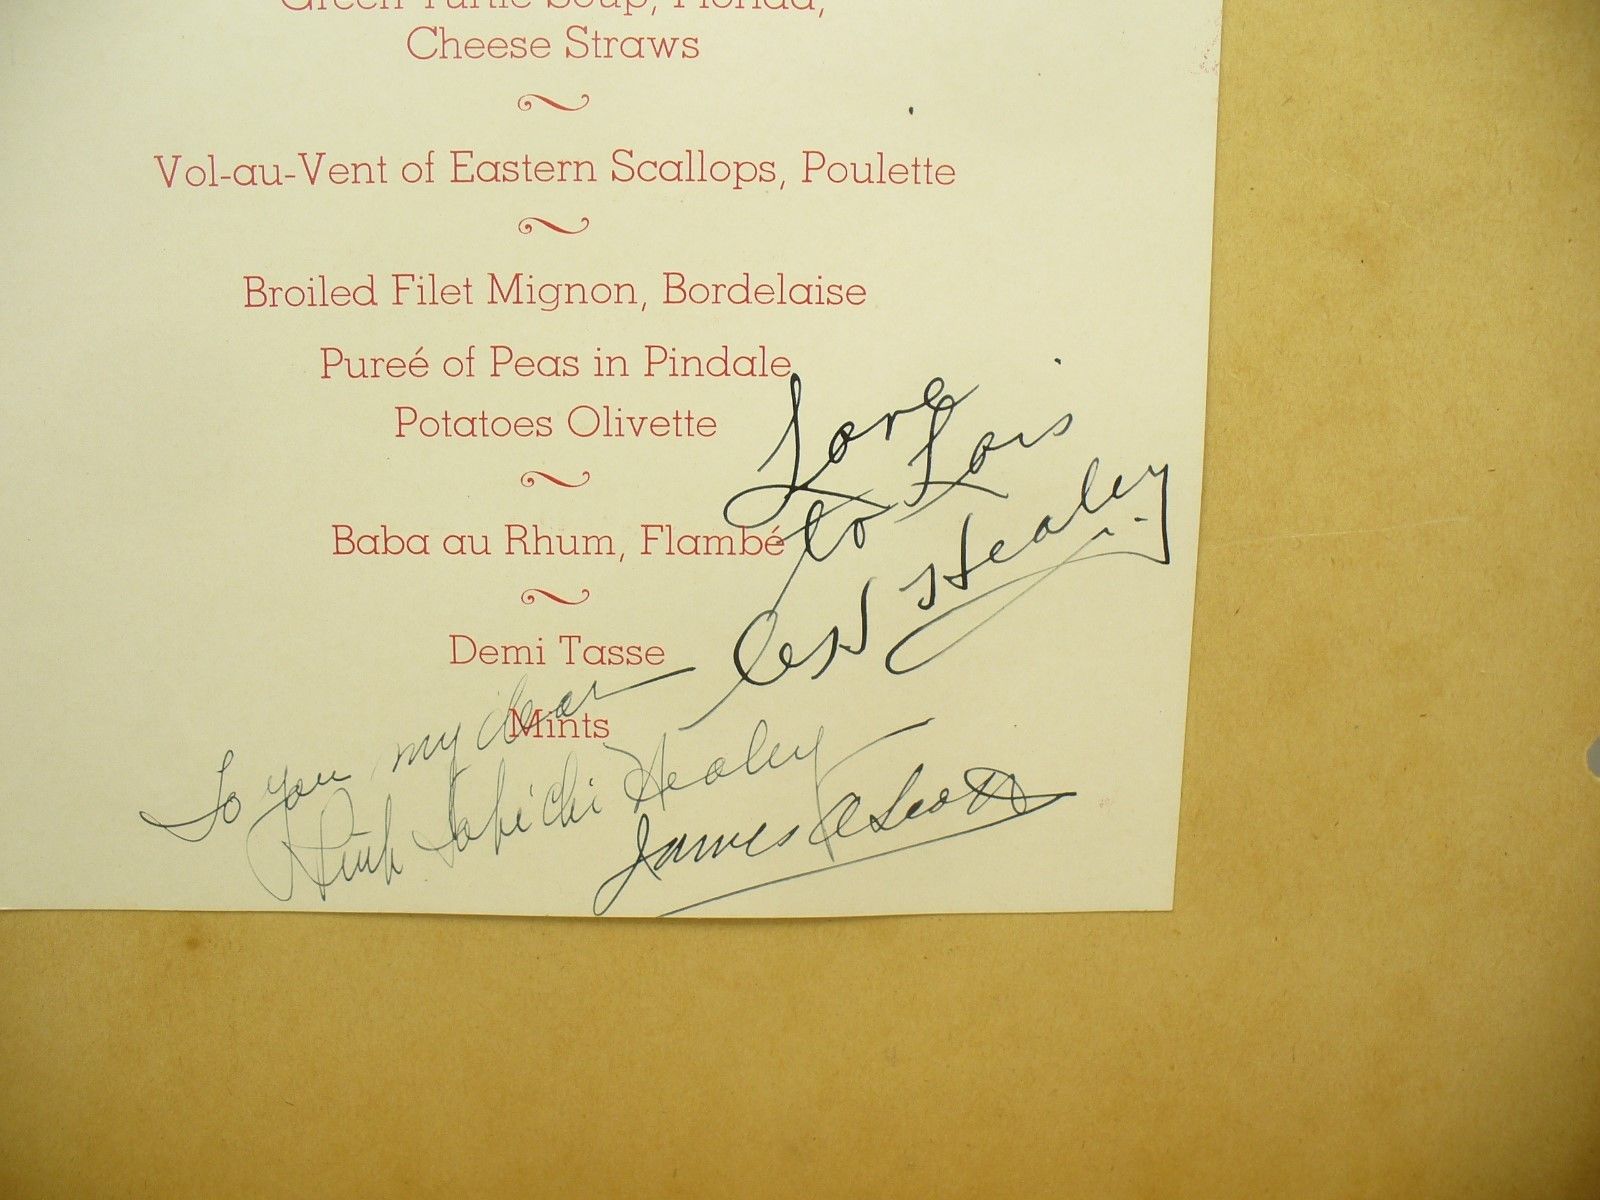 Green Turtle Soup, Florida,
Cheese Straws
Vol-au-Vent of Eastern Scallops, Poulette
Broiled Filet Mignon, Bordelaise
Pureé of Peas in Pindale
Potatoes Olivette
Baba au Rhum, Flambé
Demi Tasse
Mints
Love
to Lois
Healey
To you my dear
Healey
James A Scott